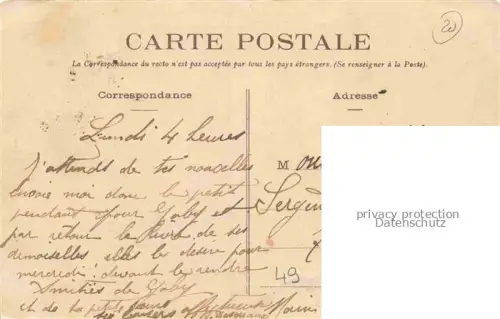 20
CARTE POSTALE
La Correspondance du recto n'est pas acceptée par tous les pays étrangers. (Se renseigner à la Poste).
Correspondance
Adresse
Lundi 4 heures
J'attends de tes nouvelles
envoie moi donc le petit
pendant pour Gaby et
par retour le livre de ses
demoiselles, elles le désire pour
mercredi devant le rendre
Amitiés de Gaby
et de la petite
M
privacy protection
Datenschutz
49